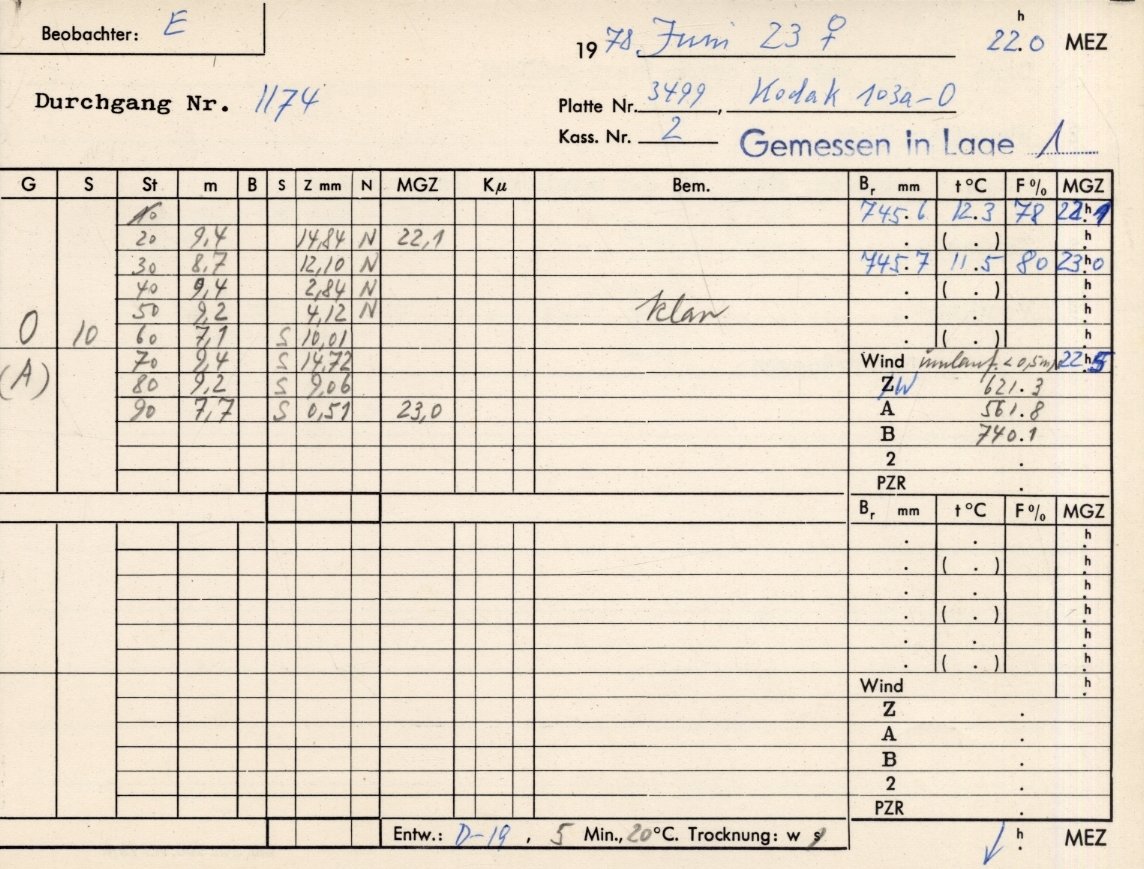 Beobachter: E
19 78 Juni 23 ♀ 22.0 h MEZ
Durchgang Nr. 1174
Platte Nr. 3499, Kodak 103a-O
Kass. Nr. 2
Gemessen in Lage 1
G S St m B S Z mm N MGZ Kμ Bem. Br mm t °C F % MGZ
10 745.6 12.3 78 22.1 h
20 9,4 14,84 N 22,1 . ( . ) h
30 8,7 12,10 N 745.7 11.5 80 23.0 h
40 9,4 2,84 N . ( . ) h
50 9,2 4,12 N klar . . h
0 10 60 7,1 S 10,01 . ( . ) h
(A) 70 9,4 S 14,72 Wind < 0,5 m/s 22.5 h
80 9,2 S 9,06 Z W 621.3
90 7,7 S 0,51 23,0 A 561.8
B 740.1
2 .
PZR .
Br mm t °C F % MGZ
. . h
. ( . ) h
. . h
. ( . ) h
. . h
. ( . ) h
Wind h
Z .
A .
B .
2 .
PZR .
Entw.: D-19, 5 Min., 20 °C. Trocknung: w s h MEZ